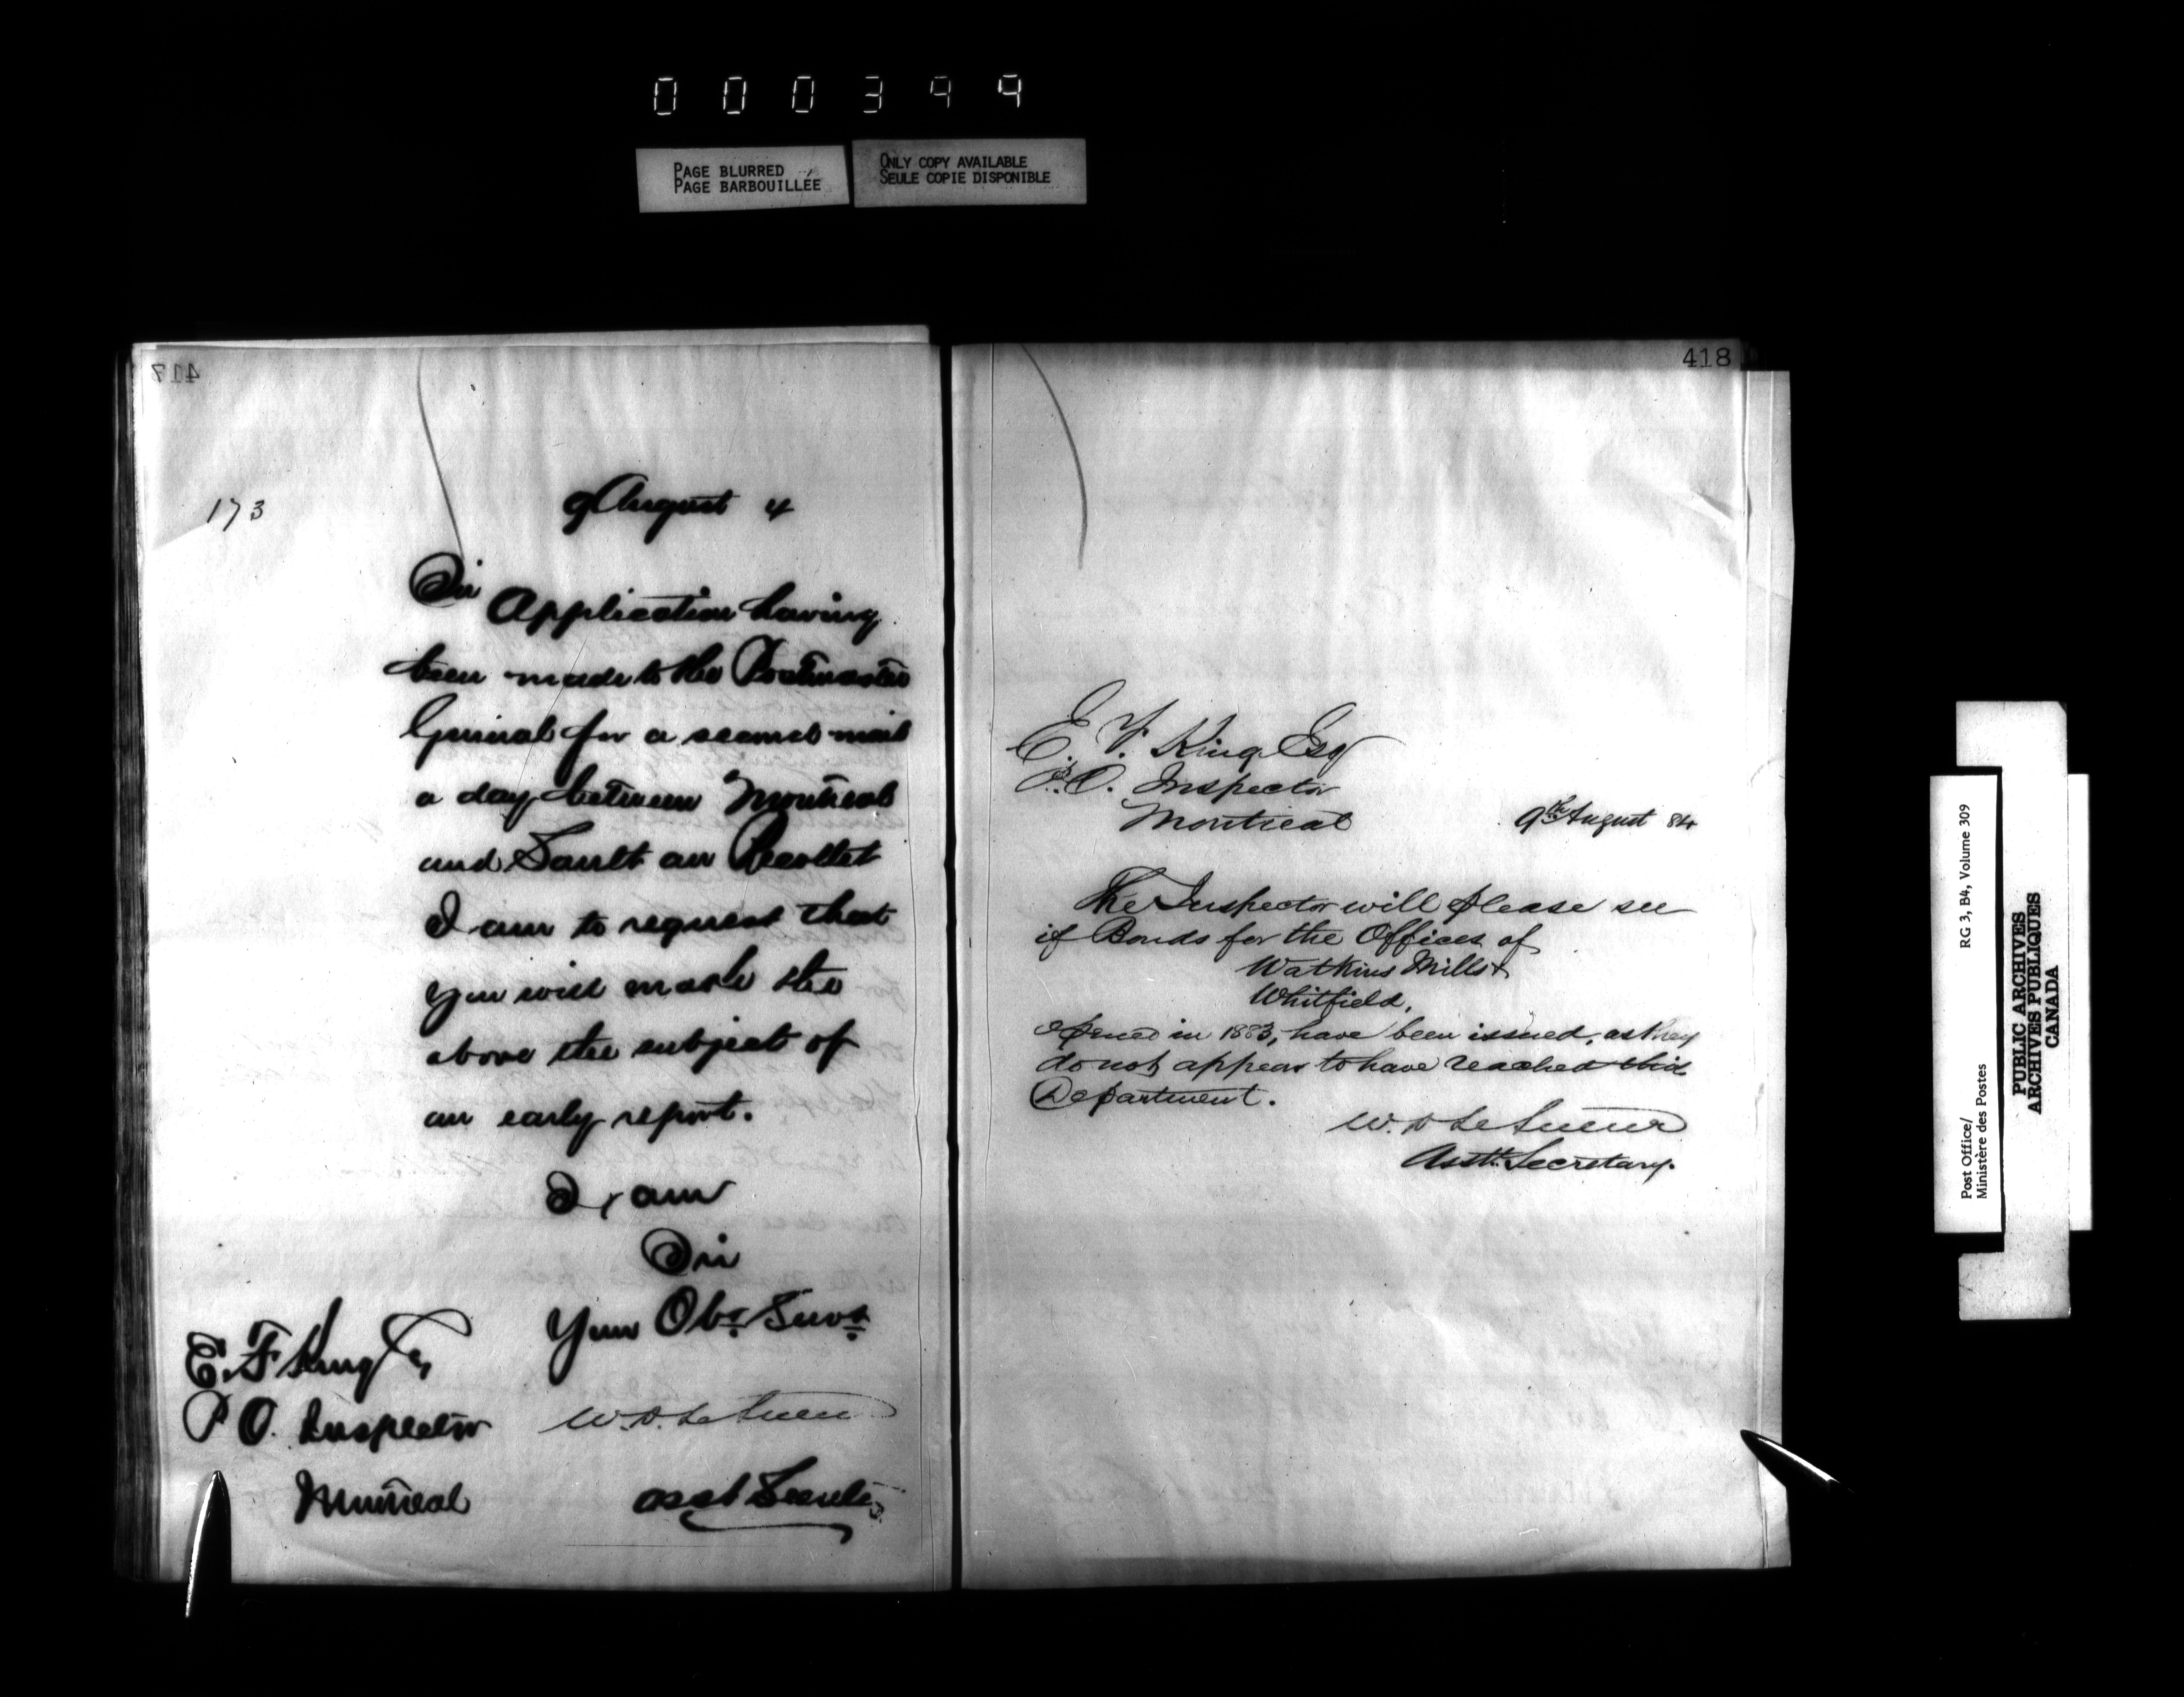 000399
PAGE BLURRED
PAGE BARBOUILLÉE
ONLY COPY AVAILABLE
SEULE COPIE DISPONIBLE
417
173
9 August 4
Sir
Application having
been made to the Postmaster
General for a second mail
a day between Montreal
and Sault au Recollet
I am to request that
you will make the
above the subject of
an early report.
I am
Sir
Your Obt Servt
E. F King Esq
P O. Inspector
Montreal
W. D. LeSueur
Asst Secrety
418
E. F. King Esq
P.O. Inspector
Montreal
9th August 84
The Inspector will please see
if Bonds for the Offices of
Watkins Mills &
Whitfield,
opened in 1883, have been issued, as they
do not appear to have reached this
Department.
W. D LeSueur
Asstt. Secretary.
Post Office/
Ministère des Postes
RG 3, B4, Volume 309
PUBLIC ARCHIVES
ARCHIVES PUBLIQUES
CANADA